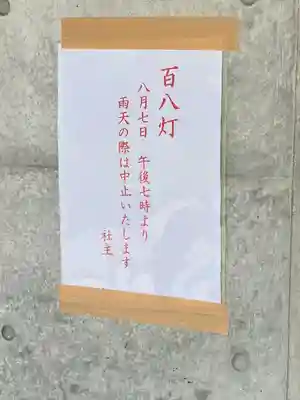 百八灯
八月七日 午後七時より
雨天の際は中止いたします
社主